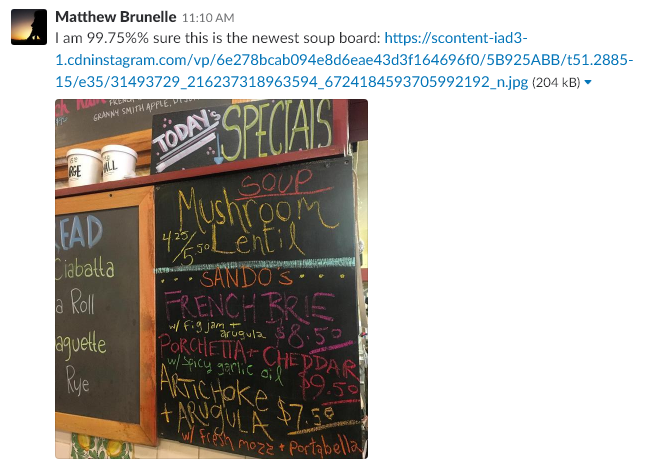 Matthew Brunelle 11:10 AM
I am 99.75%% sure this is the newest soup board: https://scontent-iad3-
1.cdninstagram.com/vp/6e278bcab094e8d6eae43d3f164696f0/5B925ABB/t51.2885-
15/e35/31493729_216237318963594_6724184593705992192_n.jpg (204 kB)
GRANNY SMITH APPLE,
TODAY'S SPECIALS
RGE
ALL
SOUP
Mushroom
Lentil
4.25/5.50
SANDO'S
FRENCH BRIE
w/ Fig jam +
arugula $8.50
PORCHETTA + CHEDDAR
w/ spicy garlic oil
$9.50
ARTICHOKE
+ ARUGULA $7.50
w/ fresh mozz + Portabella
EAD
Ciabatta
a Roll
aguette
Rye